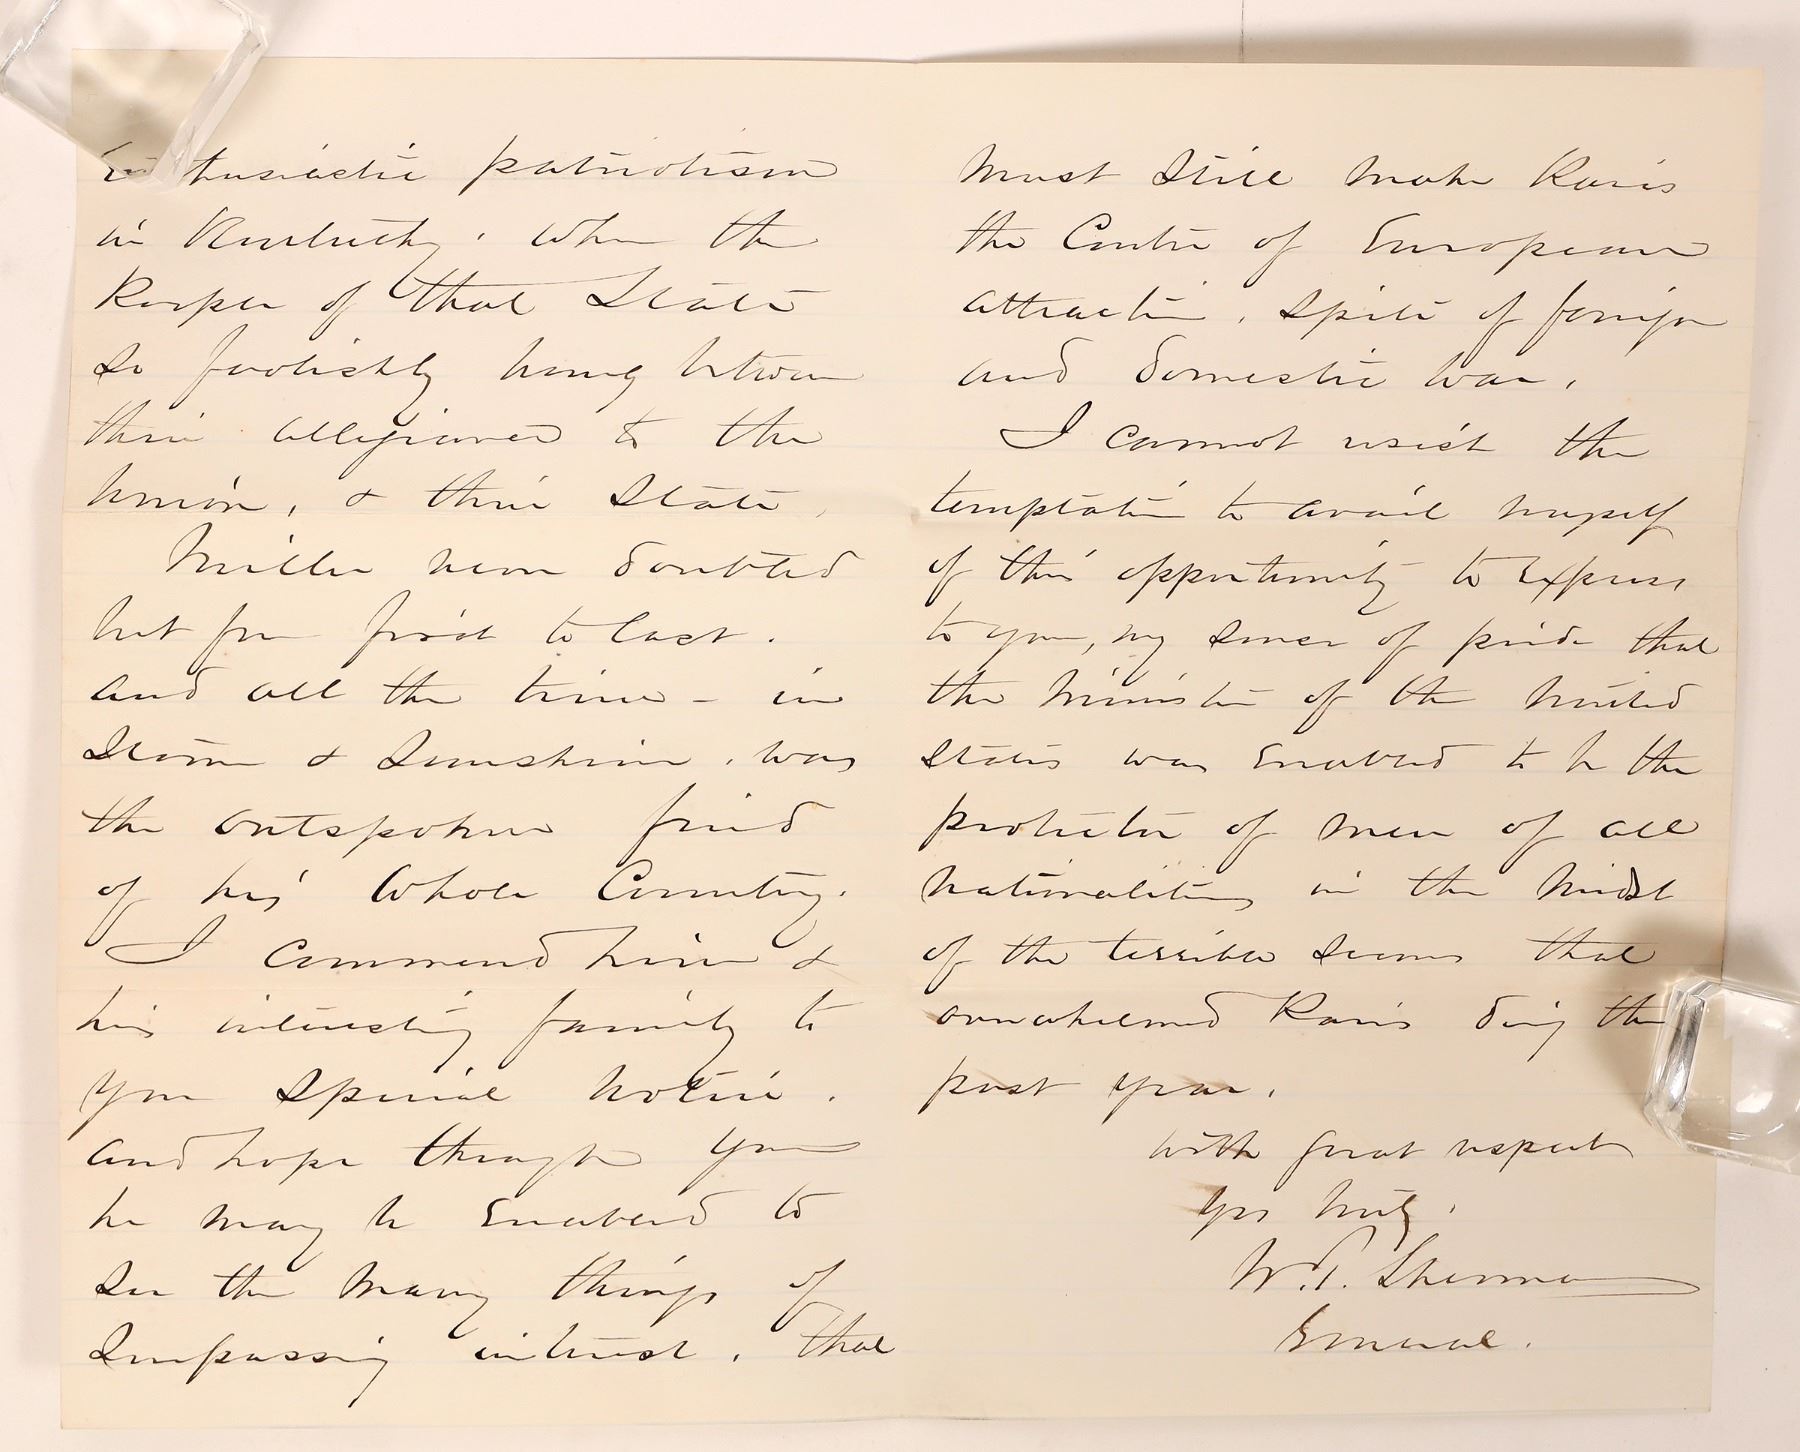 Enthusiastic patriotism
in Kentucky. When the
People of that State
so foolishly hung between
their allegiance to the
Union, & their State.
Miller never doubted
but from first to last.
and all the time - in
Storm & Sunshine. was
the outspoken friend
of his whole Country.
I commend him &
his interesting family to
your special notice.
and hope through you
he may be Enabled to
see the many things of
Surpassing interest. that
must still make Paris
the Centre of European
attraction. Spite of foreign
and domestic war.
I cannot resist the
temptation to avail myself
of this opportunity to Express
to you, my sense of pride that
the Minister of the United
States was Enabled to be the
protector of men of all
Nationalities in the midst
of the terrible scenes that
overwhelmed Paris during the
past year.
with great respect
Yrs truly.
W.T. Sherman
General.